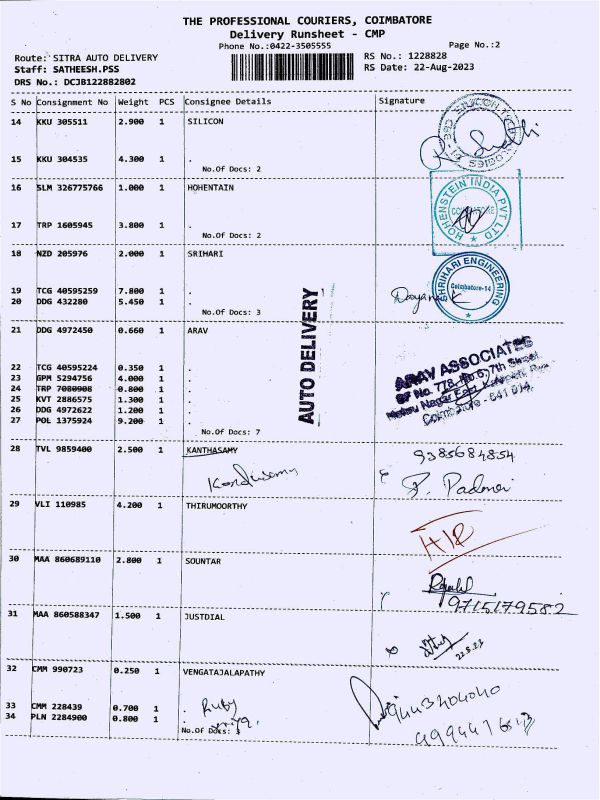 THE PROFESSIONAL COURIERS, COIMBATORE
Delivery Runsheet - CMP
Phone No.:0422-3505555 Page No.:2
Route: SITRA AUTO DELIVERY RS No.: 1228828
Staff: SATHEESH.PSS RS Date: 22-Aug-2023
DRS No.: DCJB122882802
S No Consignment No Weight PCS Consignee Details Signature
14 KKU 305511 2.900 1 SILICON
15 KKU 304535 4.300 1 .
No.Of Docs: 2
16 SLM 326775766 1.000 1 HOHENTAIN
HOHENSTEIN INDIA PVT LTD
COIMBATORE
17 TRP 1605945 3.800 1 .
No.Of Docs: 2
18 NZD 205976 2.000 1 SRIHARI
SHRIHARI ENGINEERING
Coimbatore-14
19 TCG 40595259 7.800 1 .
20 DDG 432280 5.450 1 .
No.Of Docs: 3
AUTO DELIVERY
21 DDG 4972450 0.660 1 ARAV
ARAV ASSOCIATES
SF No. 778, No.6, 7th Street
Nehru Nagar East,
Coimbatore - 641 014.
22 TCG 40595224 0.350 1 .
23 GPM 5294756 4.000 1 .
24 TRP 7080908 0.800 1 .
25 KVT 2886575 1.300 1 .
26 DDG 4972622 1.200 1 .
27 POL 1375924 9.200 1 .
No.Of Docs: 7
28 TVL 9859400 2.500 1 KANTHASAMY
9385684854
29 VLI 110985 4.200 1 THIRUMOORTHY
30 MAA 860689110 2.800 1 SOUNTAR
9715179582
31 MAA 860588347 1.500 1 JUSTDIAL
22.8.23
32 CMM 990723 0.250 1 VENGATAJALAPATHY
33 CMM 228439 0.700 1 .
Ruby
34 PLN 2284900 0.800 1 .
No.Of Docs: 3